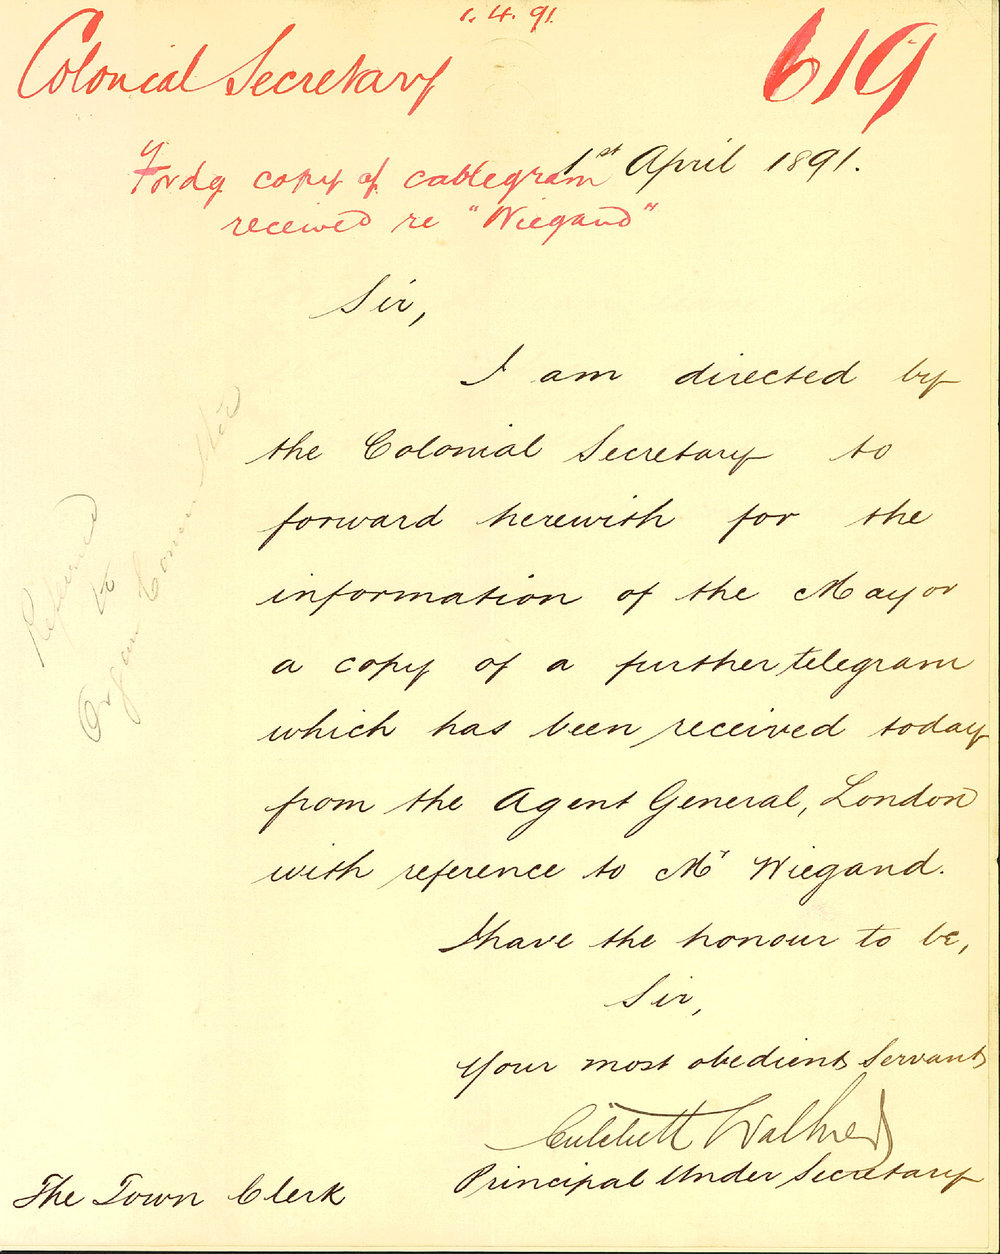 1. 4. 91.
Colonial Secretary
619
Fordg copy of cablegram
received re "Wiegand"
1st April 1891.
Sir,
I am directed by
the Colonial Secretary to
forward herewith for the
information of the Mayor
a copy of a further telegram
which has been received today
from the Agent General, London
with reference to Mr Wiegand.
I have the honour to be,
Sir,
Your most obedient Servant
Critchett Walker
Principal Under Secretary
The Town Clerk
Referred
to
Organ Committee